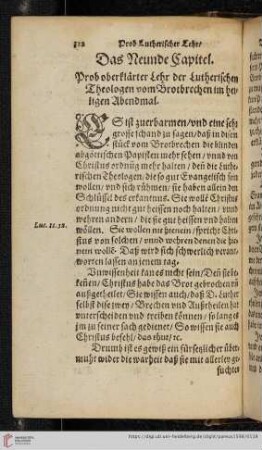 312 Prob Lutherischer Lehr/
Das Neunde Capitel.
Prob oberklärter Lehr der Lutherischen
Theologen vom Brotbrechen im hey-
ligen Abendmal.
ES ist zuerbarmen/ vnd eine sehr
grosse schand zu sagen/ daß in disem
stück vom Brotbrechen die blinden
abgöttischen Papisten mehr sehen/ vnnd von
Christus ordnũg mehr halten/ den die Luthe-
rischen Theologen/ die so gut Evangelisch sein
wöllen/ vnd sich rhümen/ sie haben allein den
Schlüssel des erkantnus. Sie wollē Christus
ordnung nicht gut heissen noch halten/ vnnd
wehren andern/ die sie gut heissen vnd halten
Luc. 11. 52. wöllen. Sie wollen nit hinein/ spricht Chri-
stus von solchen/ vnnd wehren denen die hin-
nein wollē. Daß wird sich schwerlich verant-
worten lassen an jenem tag.
Vnwissenheit kan es nicht sein/ Den sie be-
kenen/ Christus habe das Brot gebrochen vñ
außgetheilet/ Sie wissen auch/ daß D. Luther
selbst dise zwey/ Brechen vnd Außtheilen hat
vnterscheiden vnd treiben können/ so lang es
jm zu seiner sach gedienet/ So wissen sie auch
Christus befehl/ das thut/ ec.
Drumb ist es gewiß ein fürsetzlicher über-
muht wider die warheit daß sie mit allerley ge-
suchtes
https://digi.ub.uni-heidelberg.de/diglit